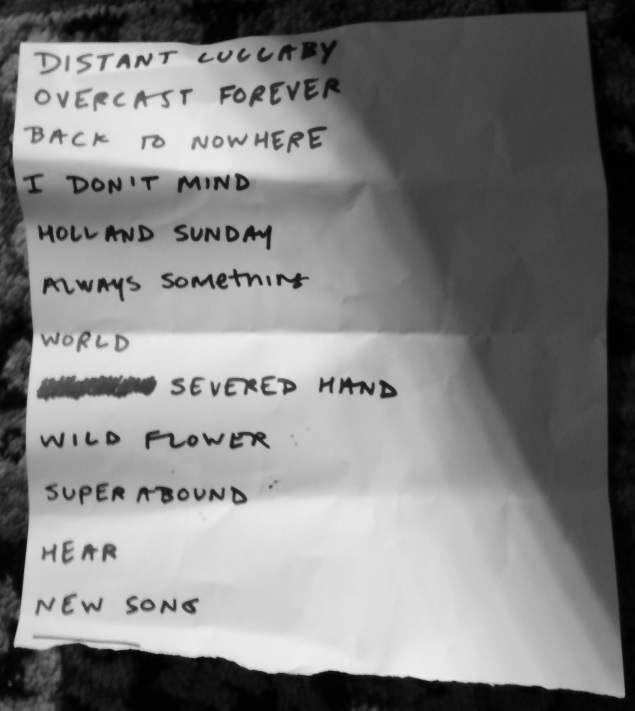 DISTANT LULLABY
OVERCAST FOREVER
BACK TO NOWHERE
I DON'T MIND
HOLLAND SUNDAY
ALWAYS SOMETHING
WORLD
SEVERED HAND
WILD FLOWER
SUPER ABOUND
HEAR
NEW SONG